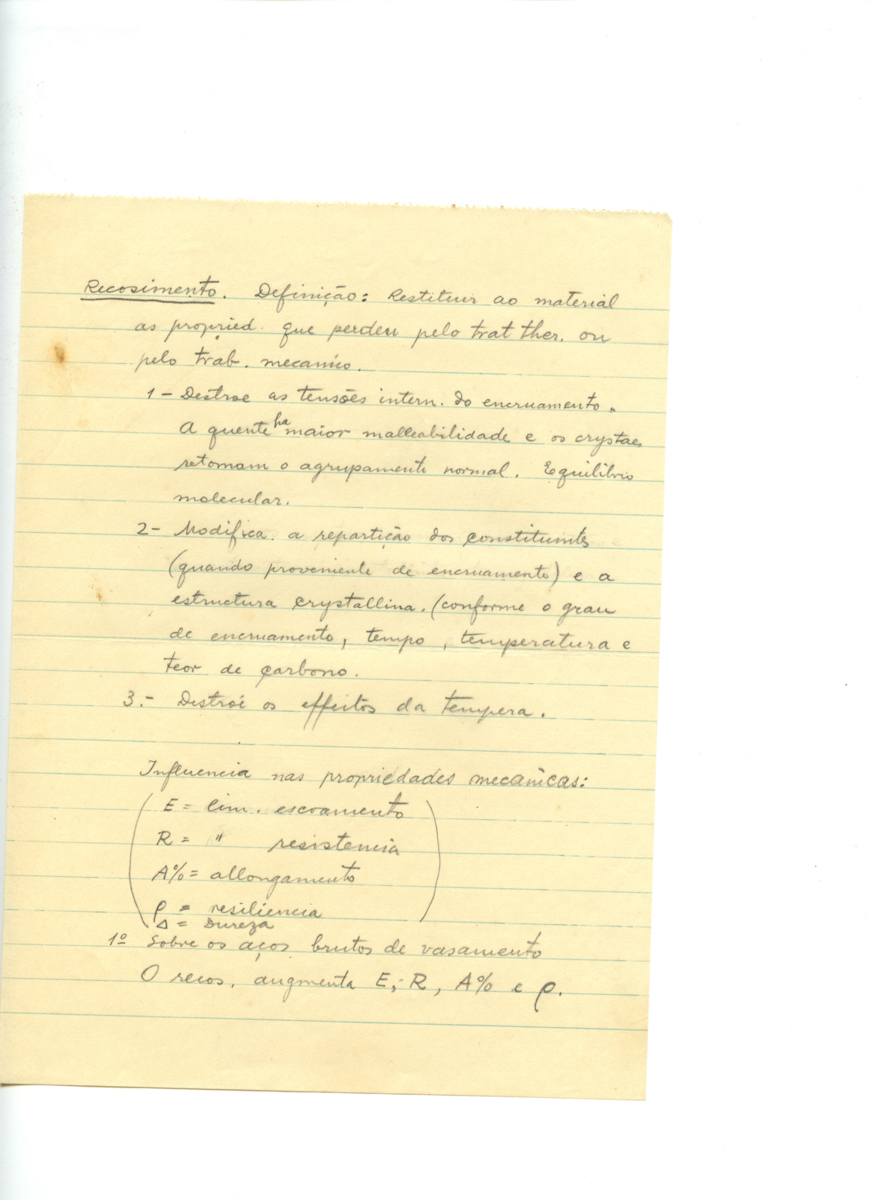 Recosimento. Definição: Restituir ao material
as propried. que perdeu pelo trat ther. ou
pelo trab. mecanico.
1 - Destroe as tensões intern. do encruamento.
A quente ha maior malleabilidade e os crystaes
retomam o agrupamento normal. Equilibrio
molecular.
2 - Modifica a repartição dos constituintes
(quando proveniente de encruamento) e a
estructura crystallina. (conforme o grau
de encruamento, tempo, temperatura e
teor de carbono.
3. - Destroé os effeitos da tempera.
Influencia nas propriedades mecanicas:
E = lim. escoamento
R = " resistencia
A% = allongamento
ρ = resiliencia
Δ = Dureza
1º Sobre os aços brutos de vasamento
O recos. augmenta E, R, A% e ρ.